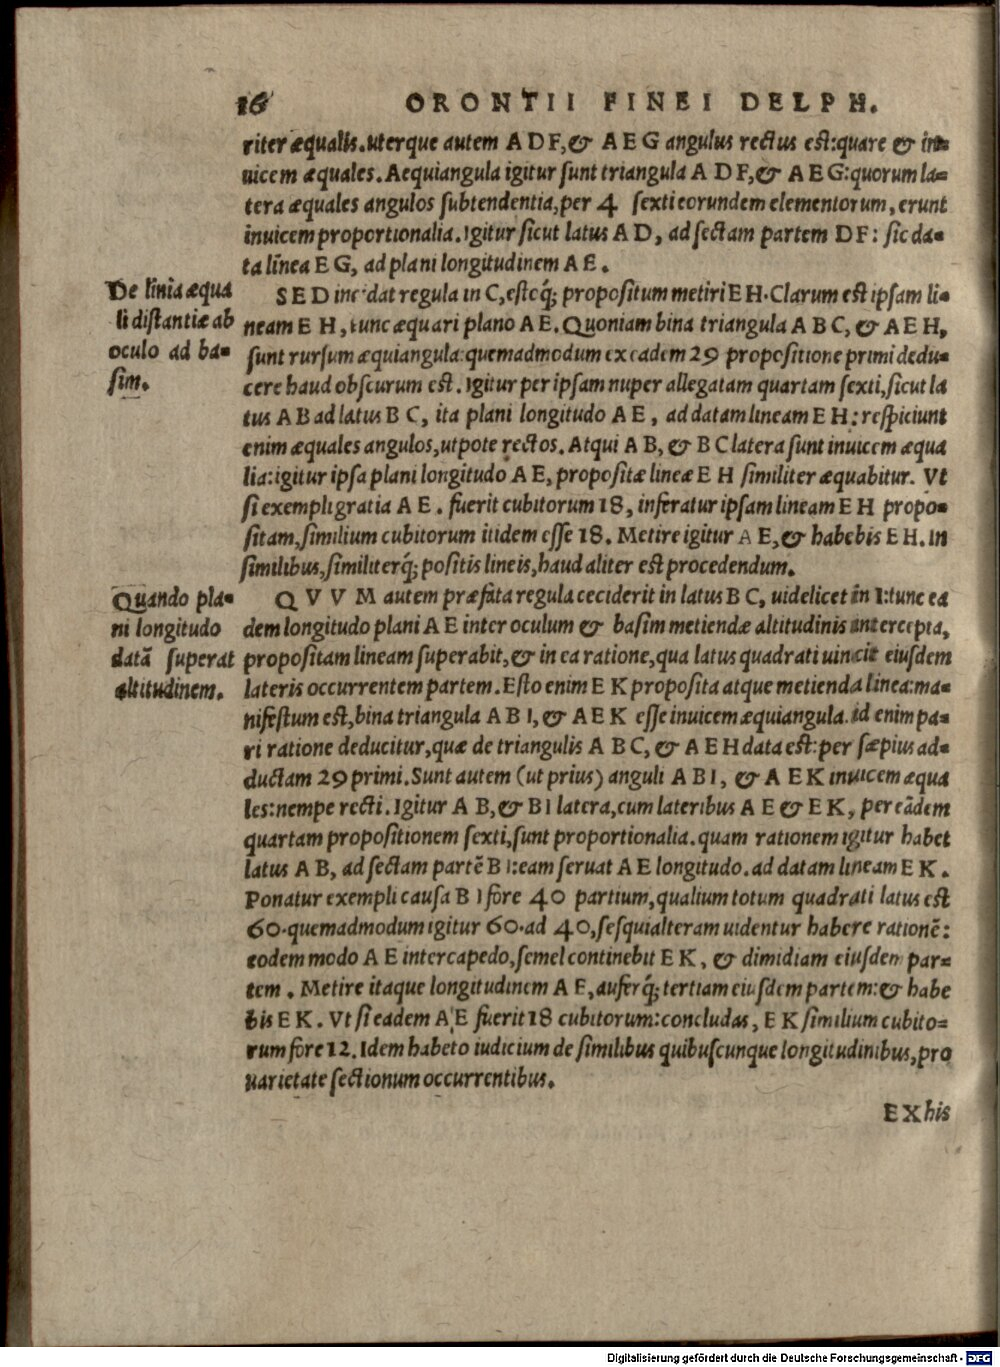 16 ORONTII FINEI DELPH.
riter æqualis.uterque autem A D F,& A E G angulus rectus est:quare & in-
uicem æquales. Aequiangula igitur sunt triangula A D F,& A E G:quorum la-
tera æquales angulos subtendentia,per 4 sexti eorundem elementorum, erunt
inuicem proportionalia. Igitur sicut latus A D, ad sectam partem D F: sic da-
ta linea E G, ad plani longitudinem A E.
De linia æqua
li distantiæ ab
oculo ad ba-
sim.
S E D incidat regula in C,estq́; propositum metiri E H. Clarum est ipsam li-
neam E H, tunc æquari plano A E. Quoniam bina triangula A B C, & A E H,
sunt rursum æquiangula:quemadmodum ex eadem 29 propositione primi dedu-
cere haud obscurum est. Igitur per ipsam nuper allegatam quartam sexti,sicut la
tus A B ad latus B C, ita plani longitudo A E, ad datam lineam E H: respiciunt
enim æquales angulos,utpote rectos. Atqui A B, & B C latera sunt inuicem æqua
lia:igitur ipsa plani longitudo A E, propositæ lineæ E H similiter æquabitur. Vt
si exempli gratia A E. fuerit cubitorum 18, inferatur ipsam lineam E H propo-
sitam,similium cubitorum itidem esse 18. Metire igitur A E,& habebis E H. In
similibus,similiterq́; positis lineis,haud aliter est procedendum.
Quando pla-
ni longitudo
datã superat
altitudinem.
Q V V M autem præfata regula ceciderit in latus B C, uidelicet in I:tunc ea
dem longitudo plani A E inter oculum & basim metiendæ altitudinis intercepta,
propositam lineam superabit,& in ea ratione,qua latus quadrati uincit eiusdem
lateris occurrentem partem. Esto enim E K proposita atque metienda linea:ma-
nifestum est,bina triangula A B I,& A E K esse inuicem æquiangula. id enim pa-
ri ratione deducitur,quæ de triangulis A B C, & A E H data est:per sæpius ad-
ductam 29 primi. Sunt autem (ut prius) anguli A B I, & A E K inuicem æqua
les:nempe recti. Igitur A B,& B I latera,cum lateribus A E & E K, per eãdem
quartam propositionem sexti,sunt proportionalia. quam rationem igitur habet
latus A B, ad sectam partẽ B I:eam seruat A E longitudo. ad datam lineam E K.
Ponatur exempli causa B I fore 40 partium,qualium totum quadrati latus est
60.quemadmodum igitur 60.ad 40,sesquialteram uidentur habere rationẽ:
eodem modo A E intercapedo,semel continebit E K, & dimidiam eiusdem par-
tem. Metire itaque longitudinem A E,auferq́; tertiam eiusdem partem:& habe
bis E K. Vt si eadem A E fuerit 18 cubitorum:concludas, E K similium cubito-
rum fore 12. Idem habeto iudicium de similibus quibuscunque longitudinibus,pro
uarietate sectionum occurrentibus.
E X his
Digitalisierung gefördert durch die Deutsche Forschungsgemeinschaft - DFG